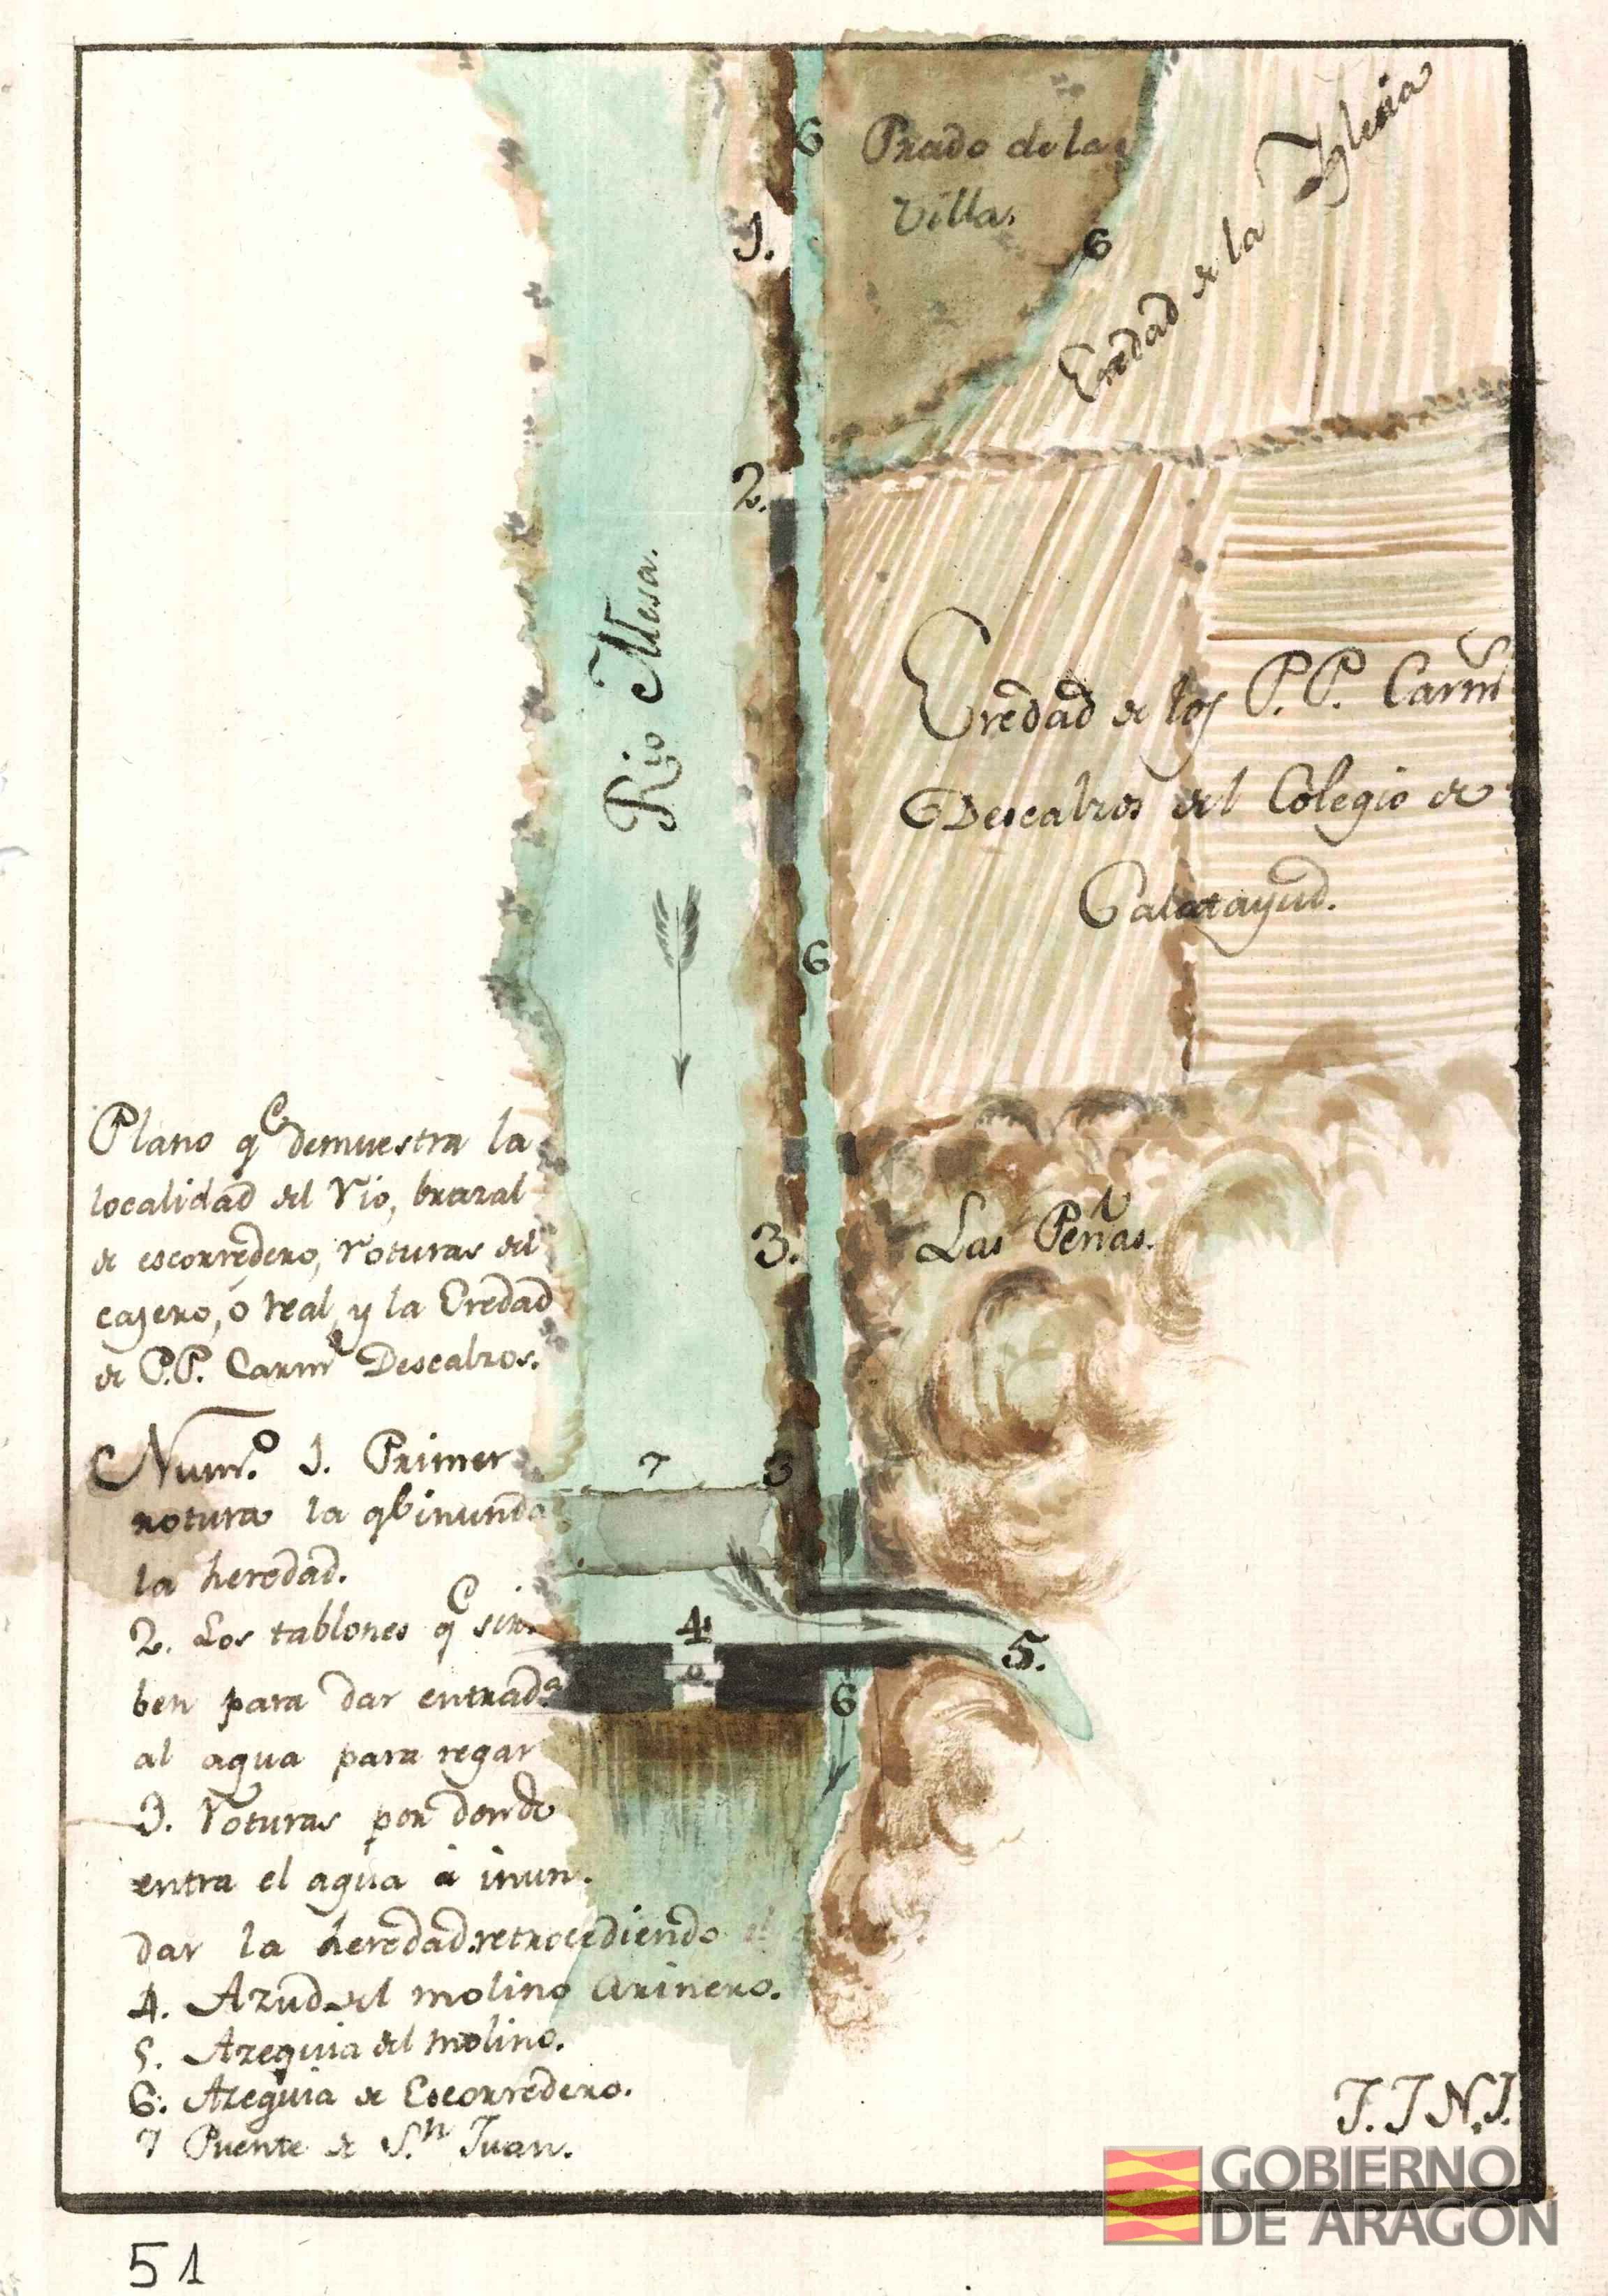 6
Prado de la
Villa.
6
Eredad de la Yglesia
1.
2.
Rio Mesa.
Eredad de los P.P. Carms
Descalzos del Colegio de
Calatayud.
6
Plano qe demuestra la
localidad del rio, brazal
de escorredero, roturas del
cajero, ó real, y la Eredad
de P.P. Carms Descalzos.
3.
Las Peñas.
7
3
Numo. 1. Primer
rotura la qe inunda
la heredad.
2. Los tablones qe sir.
ben para dar entrada
al agua para regar
3. roturas por donde
entra el agua á inun.
dar la heredad retrocediendo el
4. Azud del molino Arinero.
5. Azequia del molino.
6. Azequia de Escorredero.
7 Puente de S.n Juan.
4
5.
6
J.J N.J.
GOBIERNO
DE ARAGON
51